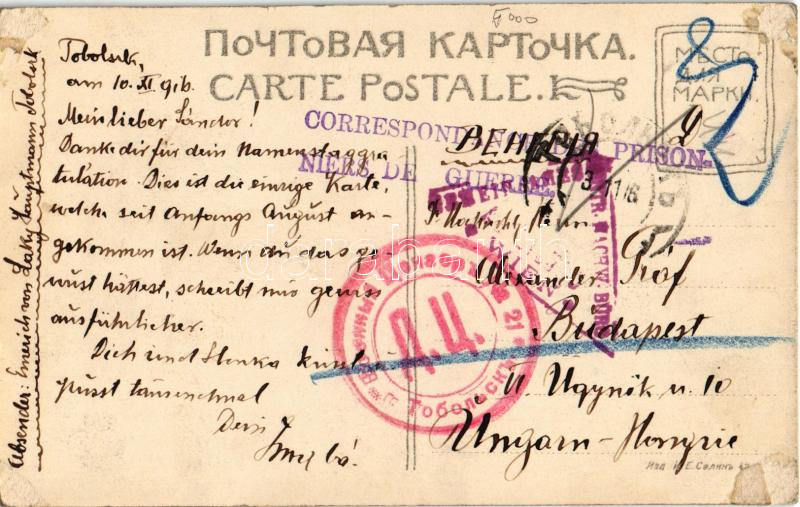 ПОЧТОВАЯ КАРТОЧКА.
CARTE POSTALE.
МЕСТО
ДЛЯ
МАРКИ.
Tobolsk,
am 10. XI. 916.
Mein lieber Sándor!
Danke dir für dein Namenstaggra-
tulation. Dies ist die einzige Karte,
welche seit Anfangs August an-
gekommen ist. Wenn du das ge-
wusst hättest, schreibst mir gewiss
ausführlicher.
Dich und Ilonka küsst u
pusst tausendmal
Dein
Imre bá.
Absender: Emerich von Laky Hauptmann Tobolsk
CORRESPONDANCE PRISON-
NIERS DE GUERRE.
ВЕНГРІЯ
Alexander Gróf
Budapest
II. Ugynök u. 10
Ungarn-Hongrie
Д.Ц.
г. Тобольскъ
21
Изд. И. Е. Селинъ
darabanth